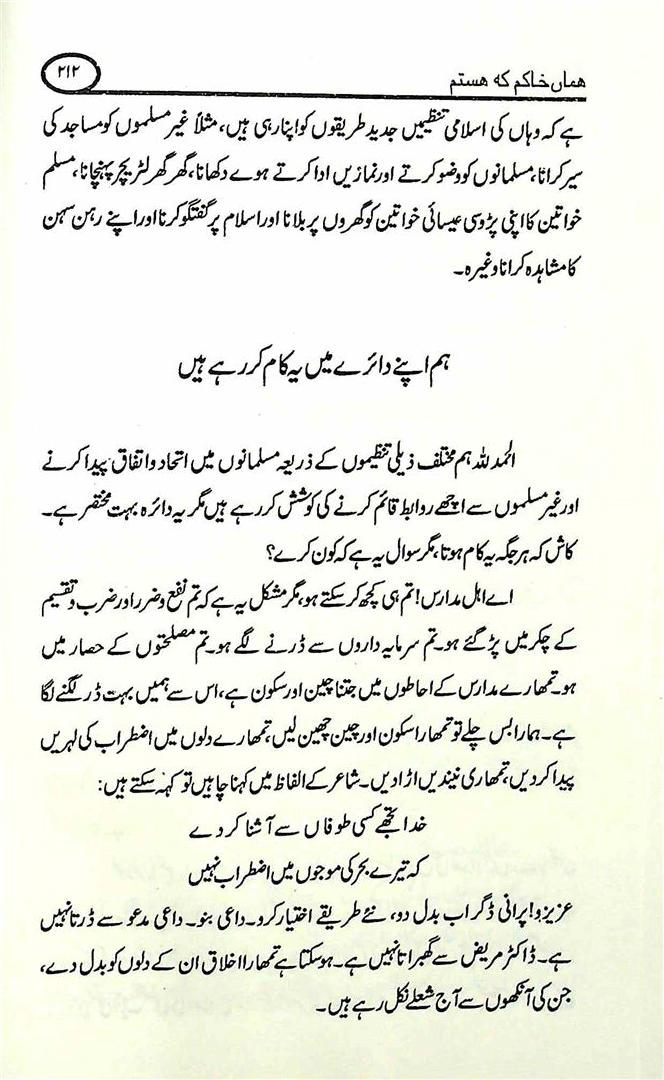 ۲۱۲
همان خاکم که هستم
ہے کہ وہاں کی اسلامی تنظیمیں جدید طریقوں کو اپنا رہی ہیں، مثلاً غیر مسلموں کو مساجد کی
سیر کرانا، مسلمانوں کو وضو کرتے اور نمازیں ادا کرتے ہوے دکھانا، گھر گھر لٹریچر پہنچانا، مسلم
خواتین کا اپنی پڑوسی عیسائی خواتین کو گھروں پر بلانا اور اسلام پر گفتگو کرنا اور اپنے رہن سہن
کا مشاہدہ کرانا وغیرہ۔
ہم اپنے دائرے میں یہ کام کر رہے ہیں
الحمد للہ ہم مختلف ذیلی تنظیموں کے ذریعہ مسلمانوں میں اتحاد و اتفاق پیدا کرنے
اور غیر مسلموں سے اچھے روابط قائم کرنے کی کوشش کر رہے ہیں مگر یہ دائرہ بہت مختصر ہے۔
کاش کہ ہر جگہ یہ کام ہوتا، مگر سوال یہ ہے کہ کون کرے؟
اے اہل مدارس! تم ہی کچھ کر سکتے ہو، مگر مشکل یہ ہے کہ تم نفع و ضرر اور ضرب و تقسیم
کے چکر میں پڑ گئے ہو۔ تم سرمایہ داروں سے ڈرنے لگے ہو۔ تم مصلحتوں کے حصار میں
ہو۔ تمھارے مدارس کے احاطوں میں جتنا چین اور سکون ہے، اس سے ہمیں بہت ڈر لگنے لگا
ہے۔ ہمارا بس چلے تو تمھارا سکون اور چین چھین لیں، تمھارے دلوں میں اضطراب کی لہریں
پیدا کر دیں، تمھاری نیندیں اڑا دیں۔ شاعر کے الفاظ میں کہنا چاہیں تو کہہ سکتے ہیں:
خدا تجھے کسی طوفاں سے آشنا کر دے
کہ تیرے بحر کی موجوں میں اضطراب نہیں
عزیزو! پرانی ڈگر اب بدل دو، نئے طریقے اختیار کرو۔ داعی بنو۔ داعی مدعو سے ڈرتا نہیں
ہے۔ ڈاکٹر مریض سے گھبراتا نہیں ہے۔ ہو سکتا ہے تمھارا اخلاق ان کے دلوں کو بدل دے،
جن کی آنکھوں سے آج شعلے نکل رہے ہیں۔